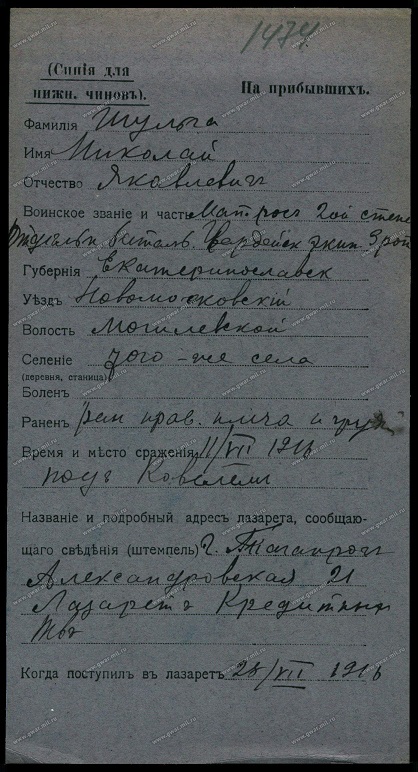 1474.
(Синія для нижн. чиновъ).
На прибывшихъ.
Фамилія Шульга
Имя Николай
Отчество Яковлевич
Воинское званіе и часть Матрос 2ой степ
Отдельн баталь. Гвардейск экип. 3 рот
Губернія Екатеринославск
Уѣздъ Новомосковскій
Волость Могилевской
Селеніе того-же села
(деревня, станица)
Боленъ
Раненъ ран прав. плеча и груди
Время и мѣсто сраженія 11/VII 1916
под Ковелем
Названіе и подробный адресъ лазарета, сообщаю-
щаго свѣдѣнія (штемпель) г. Таганрог
Александровская 21
Лазарет Кредитных
Тва
Когда поступилъ въ лазаретъ 28/VII 1916